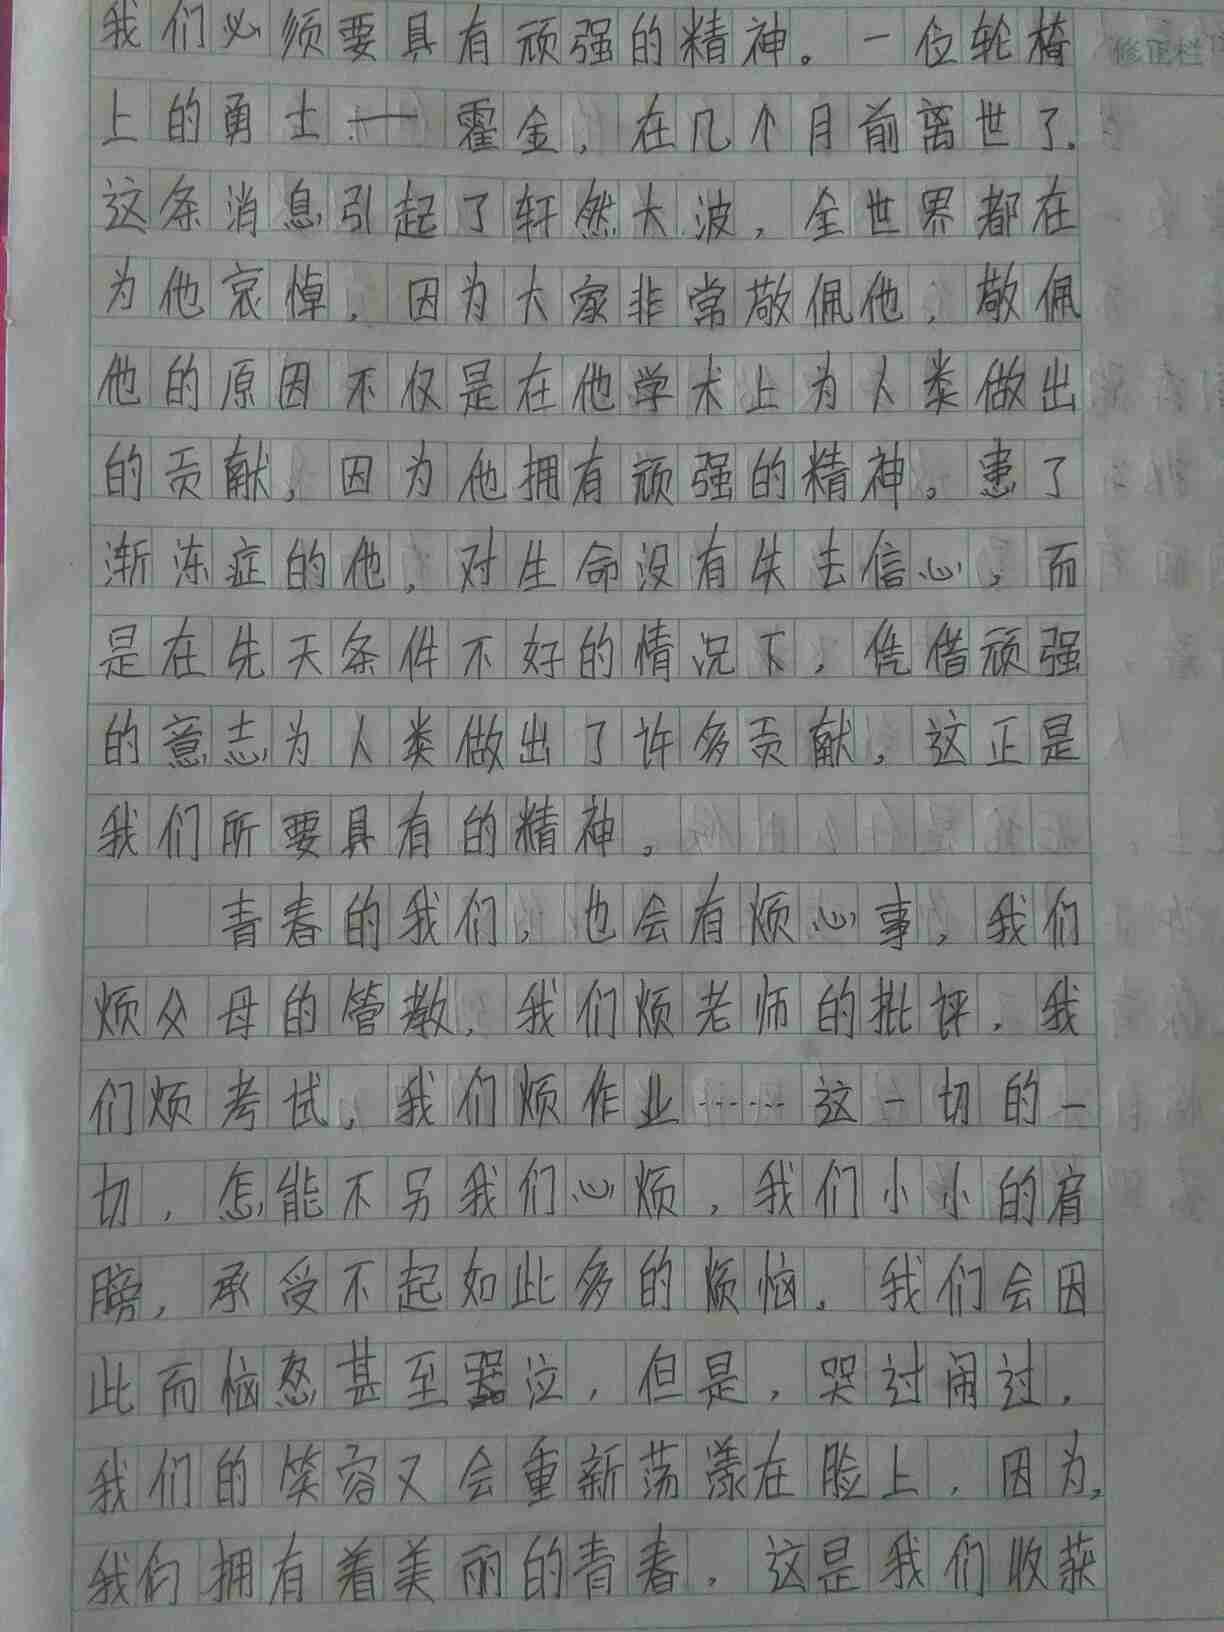 我们必须要具有顽强的精神。一位轮椅
上的勇士——霍金，在几个月前离世了。
这条消息引起了轩然大波，全世界都在
为他哀悼，因为大家非常敬佩他，敬佩
他的原因不仅是在他学术上为人类做出
的贡献，因为他拥有顽强的精神。患了
渐冻症的他，对生命没有失去信心，而
是在先天条件不好的情况下，凭借顽强
的意志为人类做出了许多贡献，这正是
我们所要具有的精神。
青春的我们，也会有烦心事，我们
烦父母的管教，我们烦老师的批评，我
们烦考试，我们烦作业……这一切的一
切，怎能不另我们心烦，我们小小的肩
膀，承受不起如此多的烦恼，我们会因
此而恼怒甚至哭泣，但是，哭过闹过，
我们的笑容又会重新荡漾在脸上，因为，
我们拥有着美丽的青春，这是我们收获